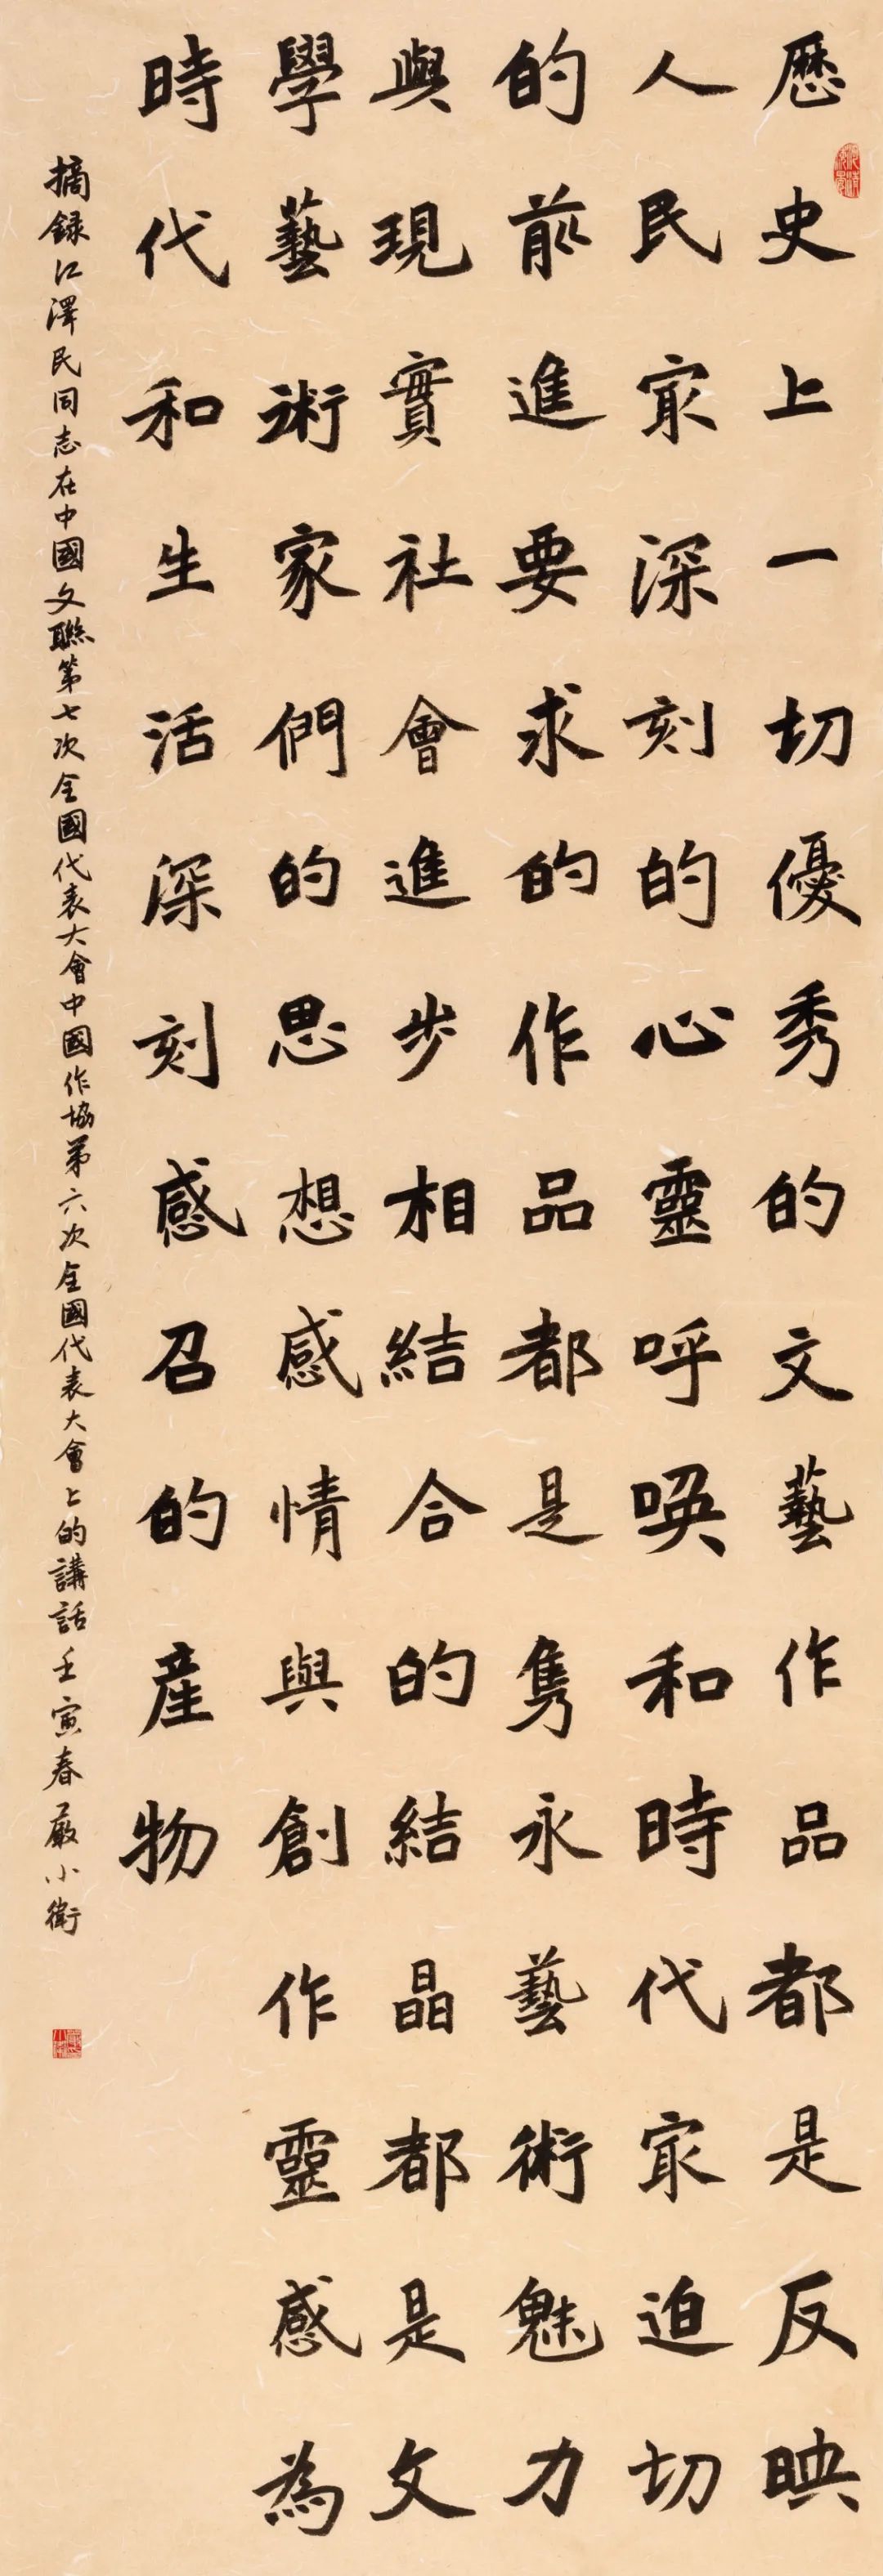 歷史上一切優秀的文藝作品都是反映
人民最深刻的心靈呼喚和時代最迫切
的前進要求的作品都是雋永藝術魅力
與現實社會進步相結合的結晶都是文
學藝術家們的思想感情與創作靈感為
時代和生活深刻感召的産物
摘録江澤民同志在中國文聯第七次全國代表大會中國作協第六次全國代表大會上的講話壬寅春嚴小衛